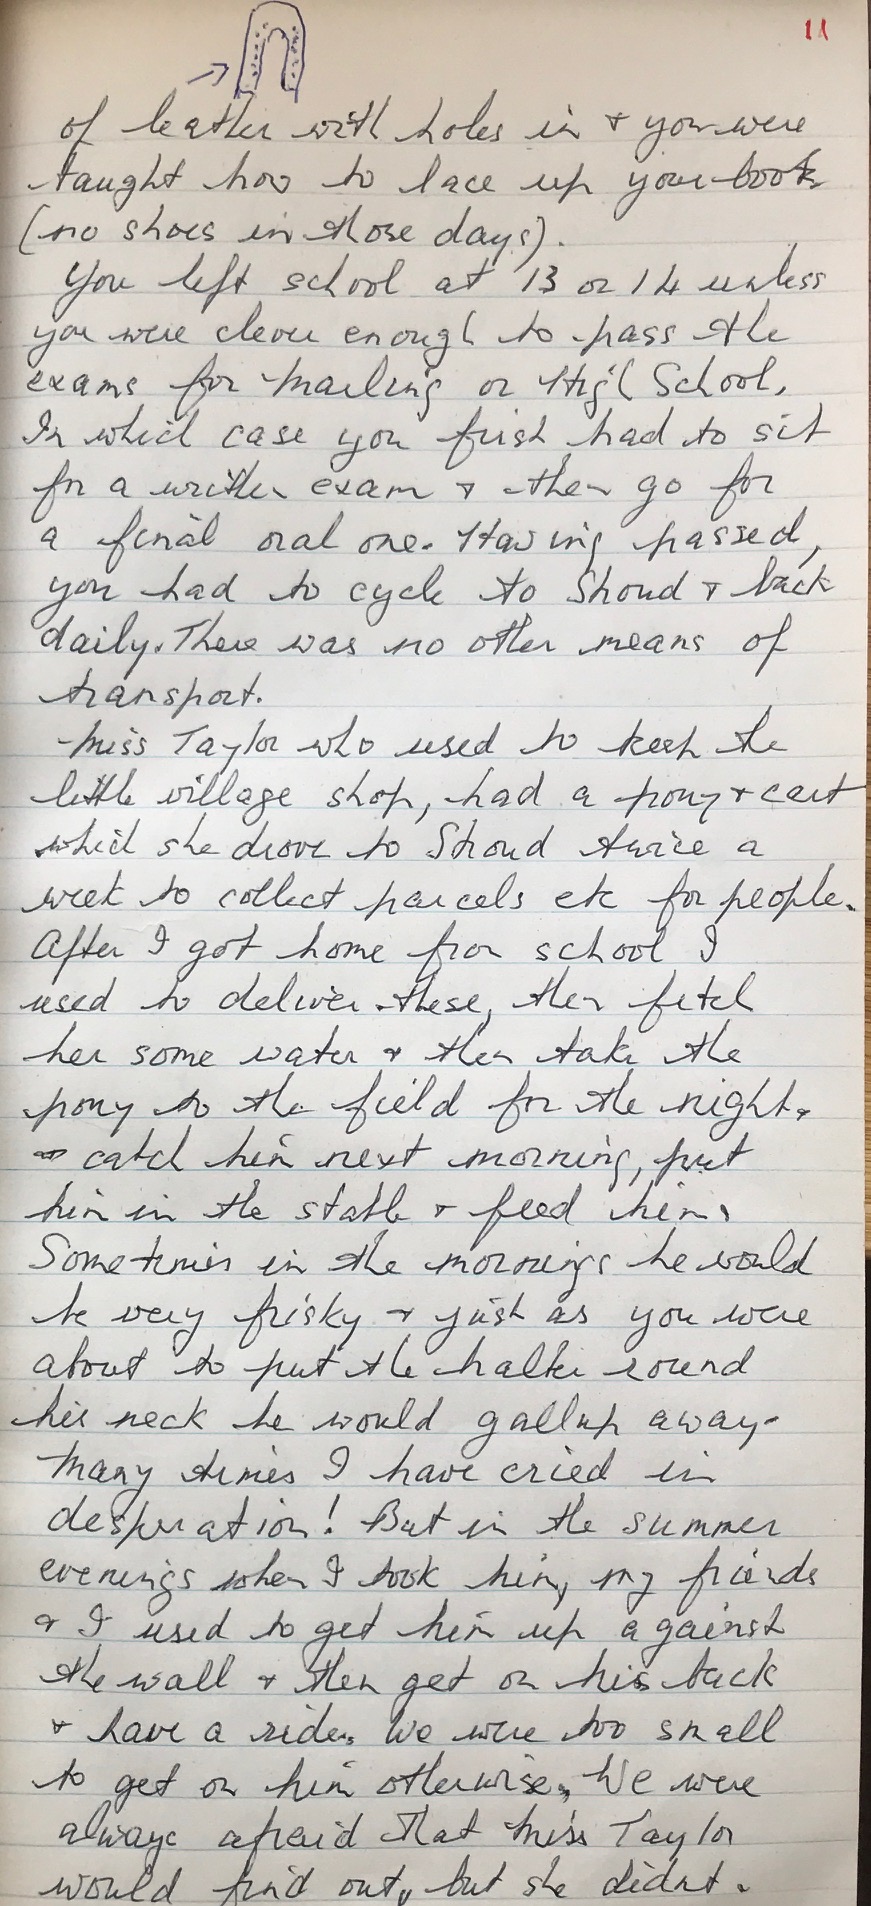 11
of leather with holes in & you were
taught how to lace up your boots
(no shoes in those days).
You left school at 13 or 14 unless
you were clever enough to pass the
exams for Marling or High School.
In which case you first had to sit
for a written exam & then go for
a final oral one. Having passed,
you had to cycle to Stroud & back
daily. There was no other means of
transport.
Miss Taylor who used to keep the
little village shop, had a pony & cart
which she drove to Stroud twice a
week to collect parcels etc for people.
After I got home from school I
used to deliver these, then fetch
her some water & then take the
pony to the field for the night &
catch him next morning, put
him in the stable & feed him.
Sometimes in the mornings he would
be very frisky & just as you were
about to put the halter round
his neck he would gallup away.
Many times I have cried in
desperation! But in the summer
evenings when I took him, my friends
& I used to get him up against
the wall & then get on his back
& have a ride. We were too small
to get on him otherwise. We were
always afraid that Miss Taylor
would find out, but she didnt.